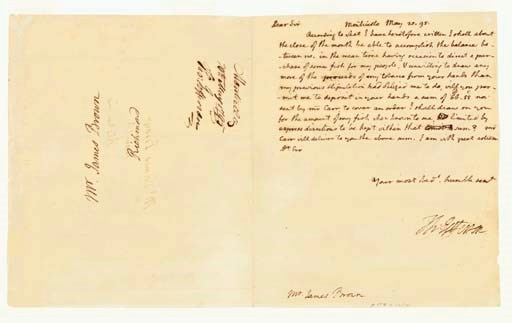 Mr. James Brown
Richmond
Dear Sir Monticello May 20. 95.
According to what I have heretofore written I shall about
the close of the month be able to accomplish the balance be-
tween us. in the mean time having occasion to direct a pur-
chase of some fish for my people, & unwilling to draw any
more of the proceeds of my tobacco from your hands than
my previous stipulation had obliged me to do, will you per-
mit me to deposit in your hands a sum of
sent by mr Carr to cover an order I shall draw on you
for the amount of my fish
express directions to be kept within that sum? mr
Carr will deliver to you the above sum. I am with great esteem
Dr Sir
Your most humble servt
Th: Jefferson
Mr. James Brown